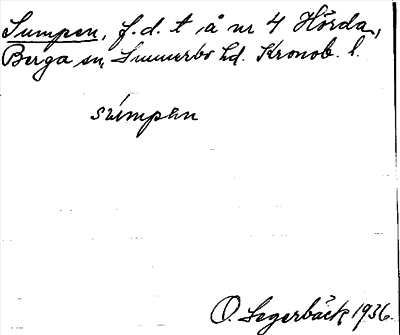 Sumpen, f.d. t å nr 4 Hörda,
Berga sn, Sunnerbo hd. Kronob. l.
sùmpen
O. Segerbäck 1936.